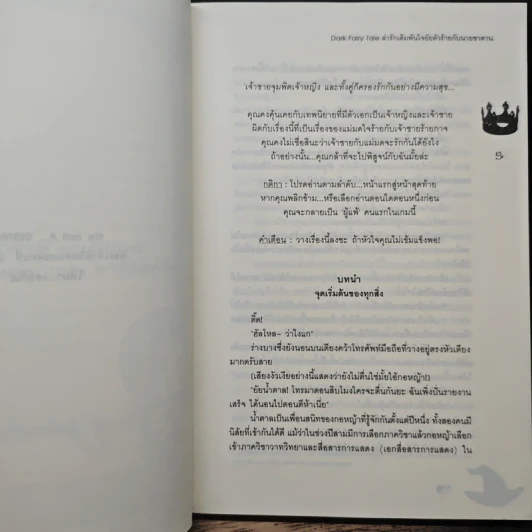 Dark Fairy Tale ล่ารักเดิมพันใจยัยตัวร้ายกับนายซาตาน
'เจ้าชายจุมพิตเจ้าหญิง และทั้งคู่ก็ครองรักกันอย่างมีความสุข...'
คุณคงคุ้นเคยกับเทพนิยายที่มีตัวเอกเป็นเจ้าหญิงและเจ้าชาย
ผิดกับเรื่องนี้ที่เป็นเรื่องของแม่มดใจร้ายกับเจ้าชายร้ายกาจ
คุณคงไม่เชื่อสินะว่าเจ้าชายกับแม่มดจะรักกันได้ยังไง
ถ้าอย่างนั้น...คุณกล้าที่จะไปพิสูจน์กับฉันมั้ยล่ะ
กติกา : โปรดอ่านตามลำดับ...หน้าแรกสู่หน้าสุดท้าย
หากคุณพลิกข้าม...หรือเลือกอ่านตอนใดตอนหนึ่งก่อน
คุณจะกลายเป็น 'ผู้แพ้' คนแรกในเกมนี้
คำเตือน : วางเรื่องนี้ลงซะ ถ้าหัวใจคุณไม่เข้มแข็งพอ!
บทนำ
จุดเริ่มต้นของทุกสิ่ง
ติ๊ด!
"ฮัลโหล~ ว่าไงแก"
ร่างบางซึ่งยังนอนบนเตียงคว้าโทรศัพท์มือถือที่วางอยู่ตรงหัวเตียง
มากดรับสาย
(เสียงงัวเงียอย่างนี้แสดงว่ายังไม่ตื่นใช่มั้ยไอ้กอหญ้า!)
"ยัยน้ำตาล! โทรมาตอนสิบโมงใครจะตื่นกันยะ ฉันเพิ่งปั่นรายงาน
เสร็จ ได้นอนไปตอนตีห้าเนี่ย"
น้ำตาลเป็นเพื่อนสนิทของกอหญ้าที่รู้จักกันตั้งแต่ปีหนึ่ง ทั้งสองคนมี
นิสัยที่เข้ากันได้ดี แม้ว่าในช่วงปีสามมีการเลือกภาควิชาแล้วกอหญ้าเลือก
เข้าภาควิชาวาทวิทยาและสื่อสารการแสดง (เอกสื่อสารการแสดง) ใน